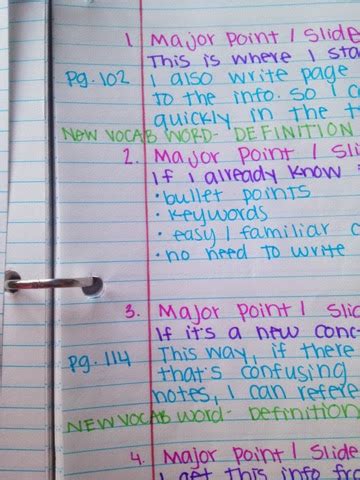 1. Major Point / Slide
This is where I sta
Pg. 102 I also write page
to the info. so I c
quickly in the t
NEW VOCAB WORD- DEFINITION
2. Major Point / Slid
If I already know
• bullet points
• keywords
• easy / familiar c
• no need to write
3. Major Point / Slid
If it's a new conc
Pg. 114 This way, if there
that's confusing
notes, I can refere
NEW VOCAB WORD- DEFINITION
4. Major Point / Slide
I get this info fro